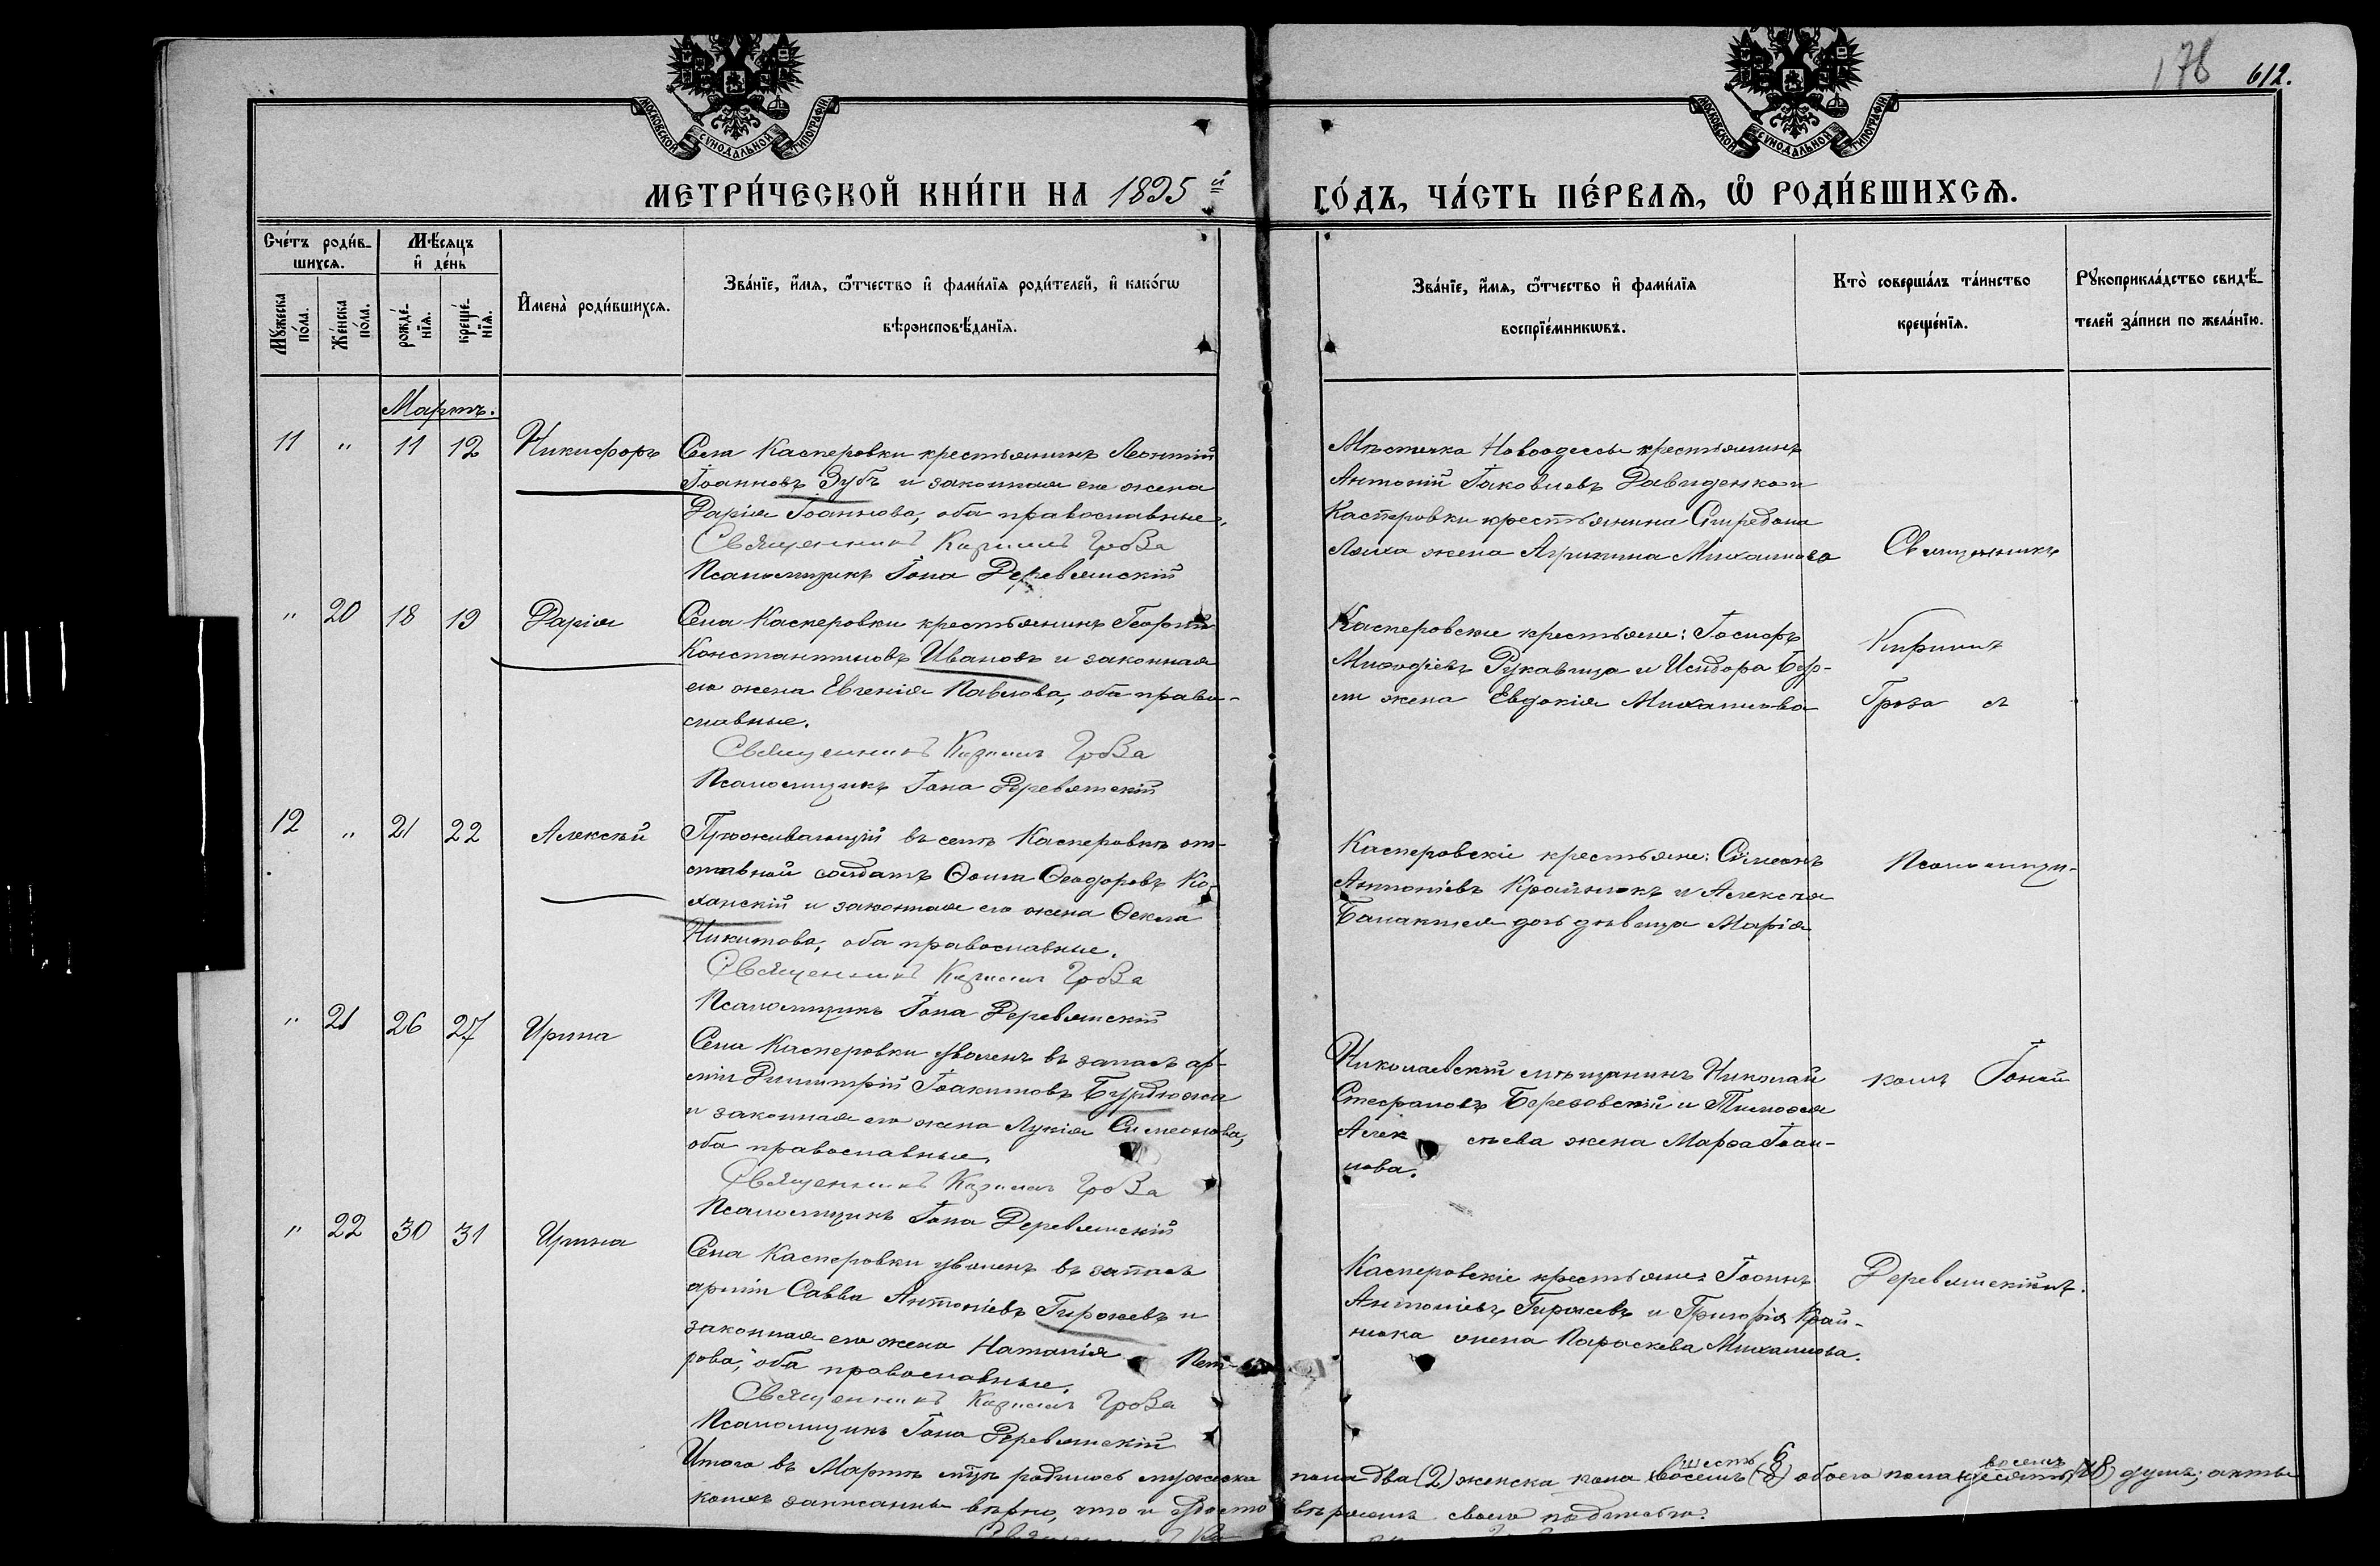 178 612.
МОСКОВСКОЙ СѴНОДАЛЬНОЙ ТИПОГРАФІИ
МОСКОВСКОЙ СѴНОДАЛЬНОЙ ТИПОГРАФІИ
МЕТРИ́ЧЕСКОЙ КНИ́ГИ НА 1895й ГО́ДЪ, ЧА́СТЬ ПЕ́РВАѦ, Ѡ҆ РОДИ́ВШИХСѦ.
Сче́тъ роди́в-
шихсѧ.
Мꙋ́жеска по́ла.
Же́нска по́ла.
Мѣ́сѧцъ
и҆ де́нь
рожде́-
нїѧ.
креще́-
нїѧ.
И҆мена̀ роди́вшихсѧ.
Зва́нїе, и҆́мѧ, ѻ҆́тчество и҆ фами́лїѧ роди́телей, и҆ како́гѡ
вѣроисповѣ́данїѧ.
Зва́нїе, и҆́мѧ, ѻ҆́тчество и҆ фами́лїѧ
воспрїе́мникѡвъ.
Кто̀ соверша́лъ та́инство
креще́нїѧ.
Рꙋкоприкла́дство свидѣ́-
телей за́писи по жела́нїю.
Мартъ.
11 " 11 12 Никифоръ
Села Касперовки крестьянинъ Леонтій
Іоанновъ Зубъ и законная его жена
Дарія Іоаннова, оба православные.
Священникъ Кириллъ Гроза
Псаломщикъ Іона Деревянскій
Мѣстечка Новоодессы крестьянинъ
Антоній Іаковлевъ Давиденко и
Касперовки крестьянина Спиридона
Ляха жена Агрипина Михаилова
Священникъ
" 20 18 19 Дарія
Села Касперовки крестьянинъ Георгій
Константиновъ Ивановъ и законная
его жена Евгенія Павлова, оба право-
славные.
Священникъ Кириллъ Гроза
Псаломщикъ Іона Деревянскій
Касперовскіе крестьяне: Іосифъ
Миѳодіевъ Рукавица и Исидора
жена Евдокія Михаилова
Кириллъ
Гроза съ
12 " 21 22 Алексѣй
Проживающій въ селѣ Касперовкѣ от-
ставной солдатъ Ѳома Ѳеодоровъ Ко-
ханскій и законная его жена Ѳекла
Никитова, оба православные.
Священникъ Кириллъ Гроза
Псаломщикъ Іона Деревянскій
Касперовскіе крестьяне: Симеонъ
Антоніевъ Крайнюкъ и Алексѣя
дочь дѣвица Марія
Псаломщи-
" 21 26 27 Ирина
Села Касперовки уволенъ въ запасъ ар-
міи Димитрій Іоакимовъ Бурдюжа
и законная его жена Лукія Симеонова,
оба православные.
Священникъ Кириллъ Гроза
Псаломщикъ Іона Деревянскій
Николаевскій мѣщанинъ Николай
Стефановъ Березовскій и Тимоѳея
Алексѣева жена Марѳа Іоан-
нова.
комъ Іоною
" 22 30 31 Ирина
Села Касперовки уволенъ въ запасъ
арміи Савва Антоніевъ Гиржевъ и
законная его жена Наталія Пет-
рова, оба православные.
Священникъ Кириллъ Гроза
Псаломщикъ Іона Деревянскій
Касперовскіе крестьяне: Іоаннъ
Антоніевъ Гиржевъ и Григорія Край-
нюка жена Параскева Михаилова.
Деревянскимъ.
Итого въ Мартѣ м-цѣ родилось мужеска пола два (2) женска пола восемь шесть (6) обоего пола десять восемь (8) душъ; акты
коихъ записаны вѣрно, что и удостовѣряемъ своею подписью.